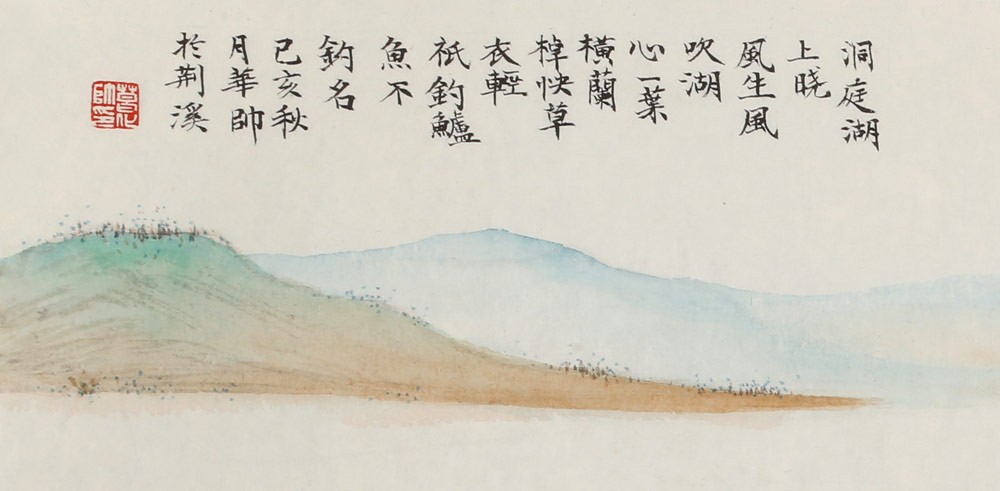 洞庭湖
上晓
風生風
吹湖
心一葉
橫蘭
棹快草
衣輕
祇釣鱸
魚不
釣名
己亥秋
月華帥
於荆溪